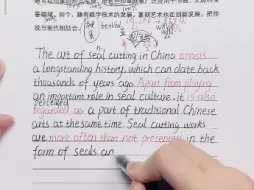 如今，随着数字技术的发展，篆刻艺术也在创新发展，把传
统与现代相结合。
The art of seal cutting in China boasts
a longstanding history, which can date back
thousands of years ago. Apart from playing
an important role in seal culture, it is also
perceived
regarded as a part of traditional Chinese
arts at the same time. Seal cutting works
are more often than not presented in the
form of seals an